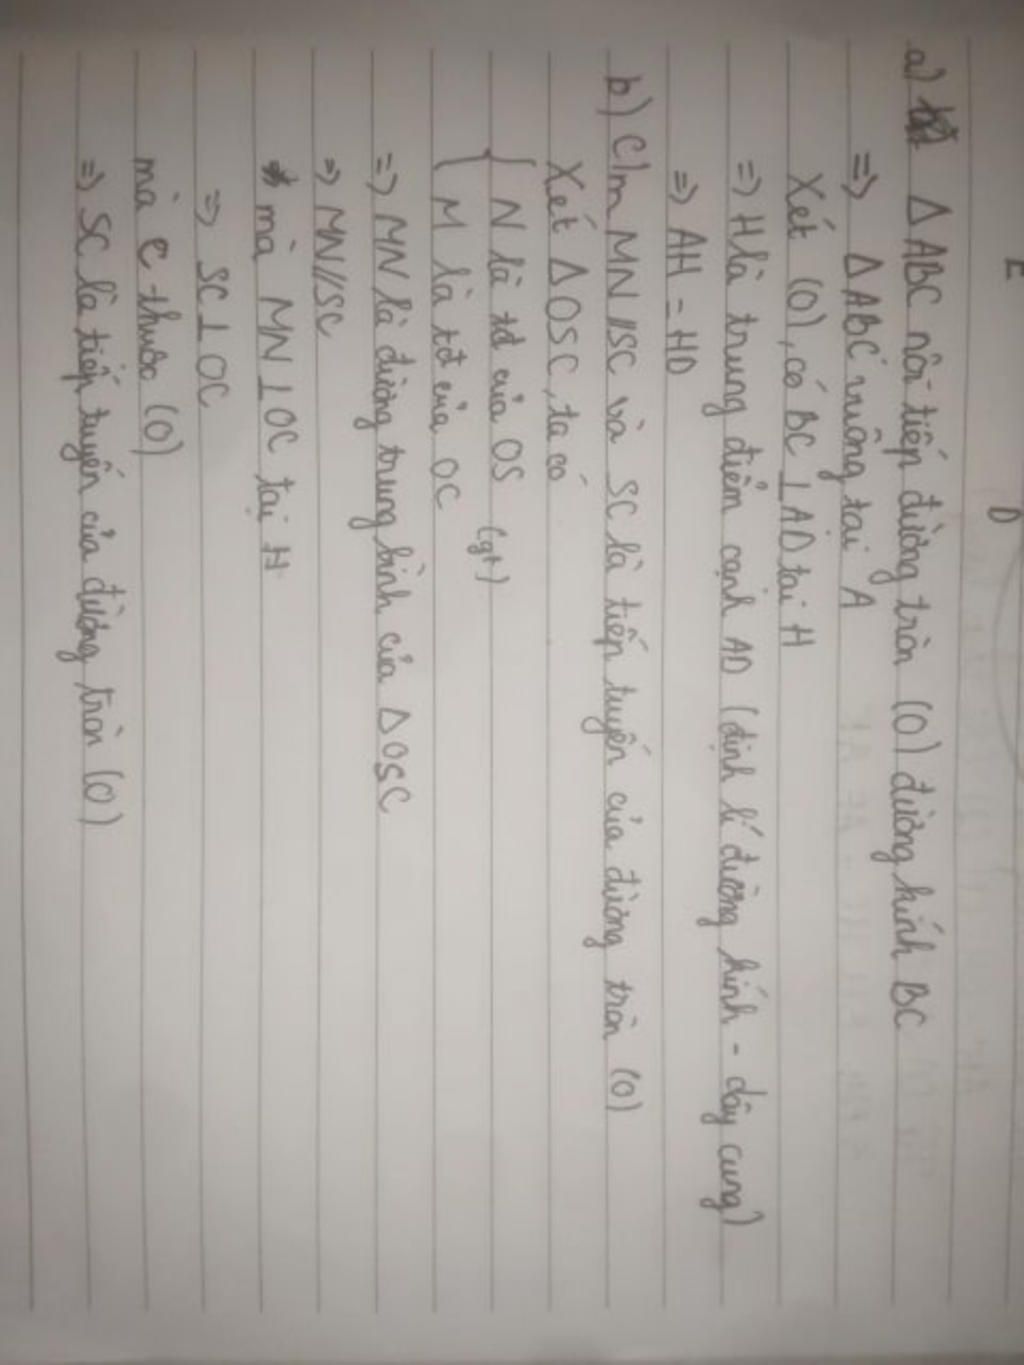 E D
a) Δ ABC nội tiếp đường tròn (O) đường kính BC
=> Δ ABC vuông tại A
Xét (O), có BC ⊥ AD tại H
=> H là trung điểm cạnh AD (định lí đường kính - dây cung)
=> AH = HD
b) C/m MN // SC và SC là tiếp tuyến của đường tròn (O)
Xét Δ OSC, ta có
{ N là tđ của OS
(gt)
{ M là tđ của OC
=> MN là đường trung bình của Δ OSC
=> MN // SC
mà MN ⊥ OC tại H
=> SC ⊥ OC
mà C thuộc (O)
=> SC là tiếp tuyến của đường tròn (O)